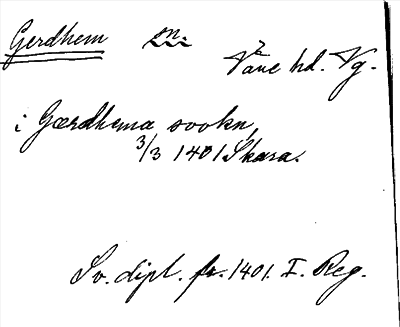 Gerdhem sn.
Väne hd. Vg.
i Gærdhema sookn,
3/3 1401 Skara.
Sv. dipl. fr. 1401. I. Reg.